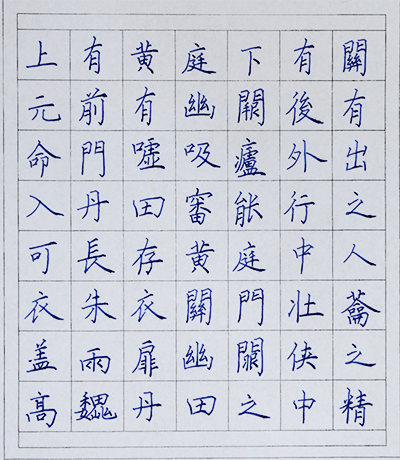 上有黄庭下有關
元前有幽闕後有
命門嘘吸廬外出
入丹田審能行之
可長存黄庭中人
衣朱衣關門壮蘥
盖雨扉幽闕侠之
高魏丹田之中精